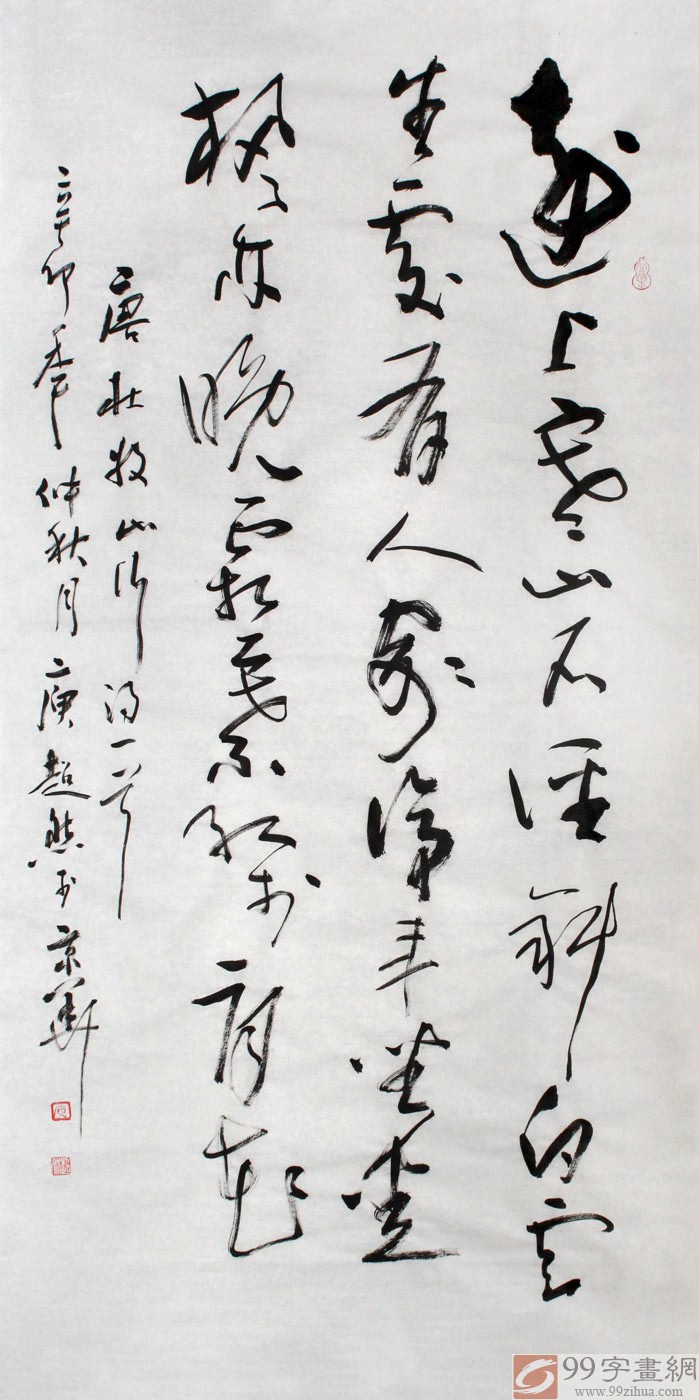 遠上寒山石徑斜白雲
生處有人家停車坐愛
楓林晚霜葉紅於二月花
唐杜牧山行詩一首
辛卯秊仲秋月庚超然於京華
99字畫網
www.99zihua.com